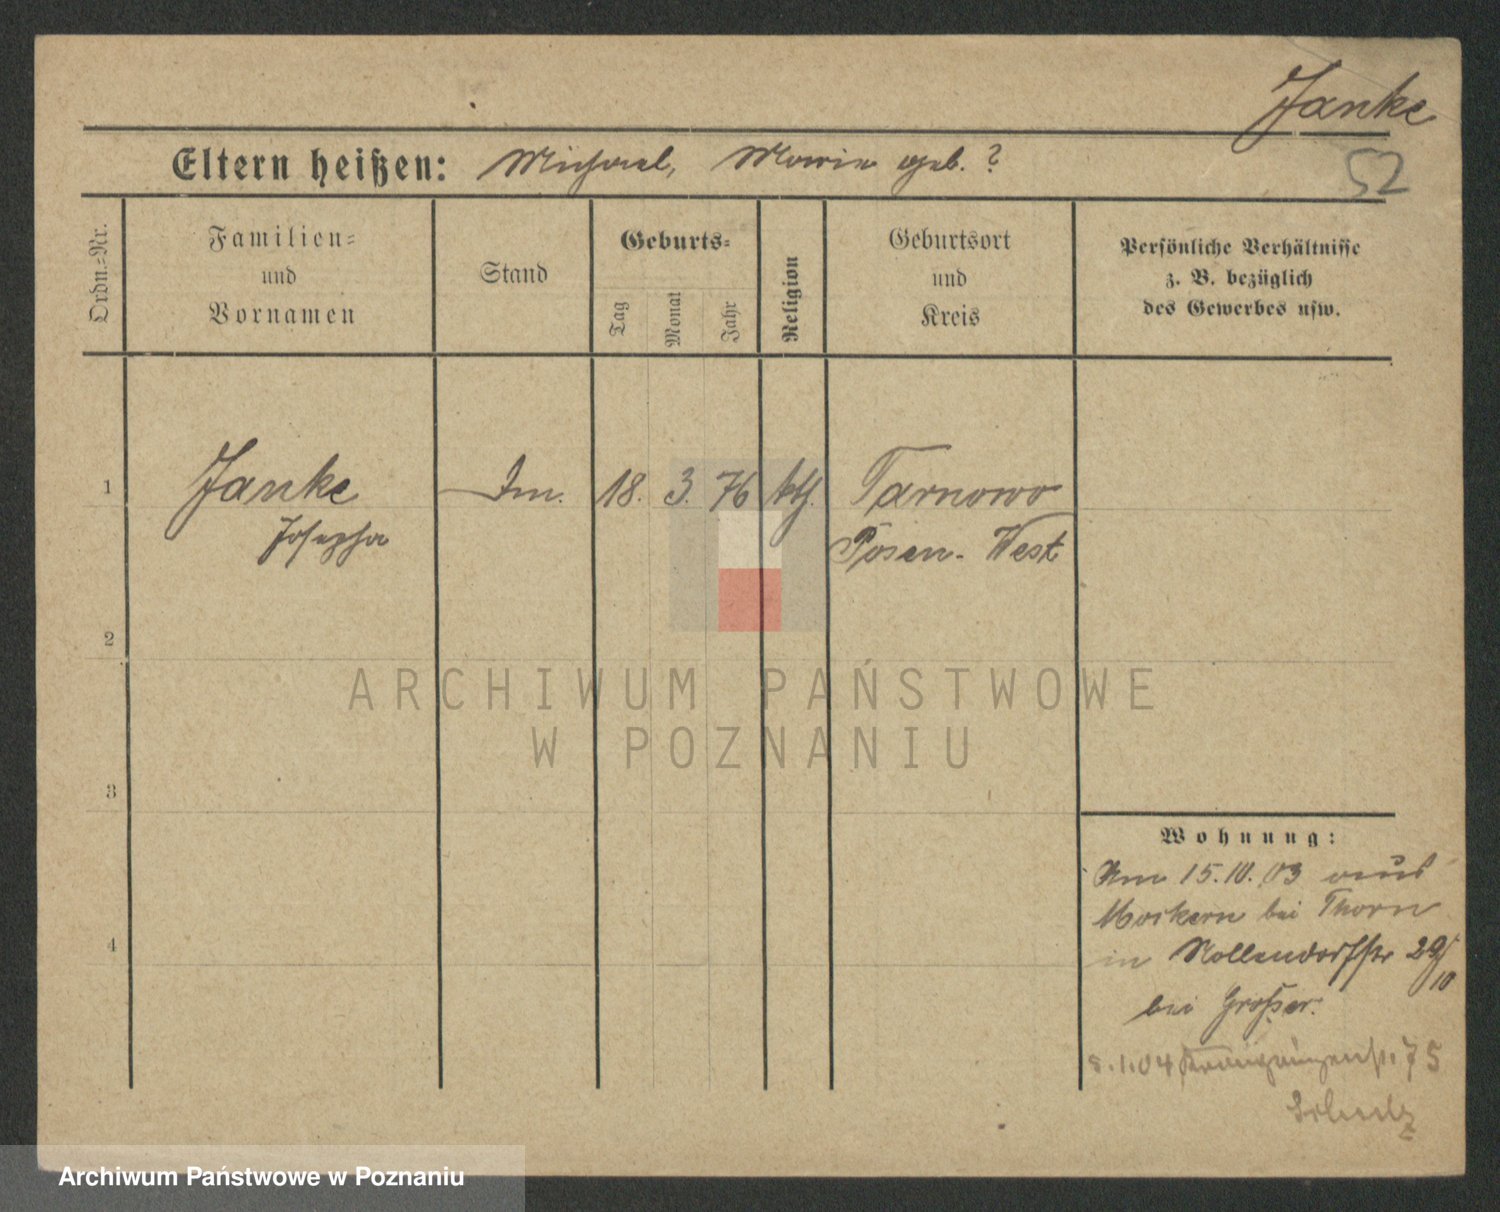 Janke
52
Eltern heißen: Michael, Marie geb. ?
Ordn.-Nr.
Familien-
und
Vornamen
Stand
Geburts-
Tag
Monat
Jahr
Religion
Geburtsort
und
Kreis
Persönliche Verhältnisse
z. B. bezüglich
des Gewerbes usw.
1 Janke 18. 3. 76 kth. Tarnowo
Josepha Posen-West
2
3
4
Wohnung:
Am 15.10.03 aus
Mockern bei Thorn
in Nollendorfstr 29/10
bei Großer.
1.04 75
Schulz
ARCHIWUM PAŃSTWOWE
W POZNANIU
Archiwum Państwowe w Poznaniu